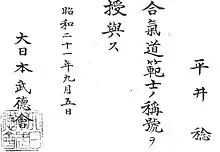 平井稔
合氣道範士ノ稱號ヲ
授與ス
昭和二十一年九月五日
大日本武德會